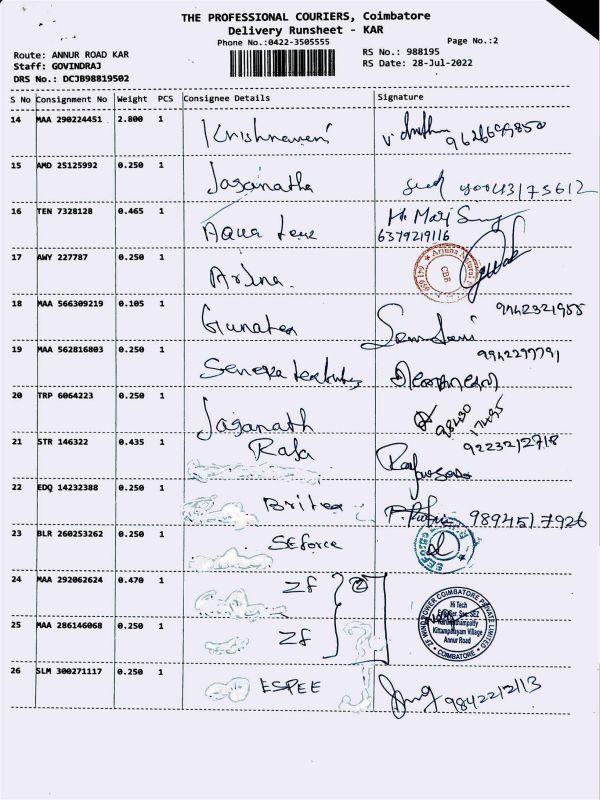 THE PROFESSIONAL COURIERS, Coimbatore
Delivery Runsheet - KAR
Phone No.:0422-3505555
Page No.:2
Route: ANNUR ROAD KAR
RS No.: 988195
Staff: GOVINDRAJ
RS Date: 28-Jul-2022
DRS No.: DCJB98819502
S No Consignment No Weight PCS Consignee Details Signature
14 MAA 290224451 2.800 1 Krishnaveni
15 AMD 25125992 0.250 1 Jaganatha
16 TEN 7328128 0.465 1 Aqua
6379219116
17 AWY 227787 0.250 1 Arjuna
Arjuna Natural
CBE
18 MAA 566309219 0.105 1 9942321955
19 MAA 562816803 0.250 1
20 TRP 6064223 0.250 1 Jaganath
21 STR 146322 0.435 1 Raja 9223212718
22 EDQ 14232388 0.250 1 9894517926
23 BLR 260253262 0.250 1 SEforce
24 MAA 292062624 0.470 1 ZF 2
25 MAA 286146068 0.250 1 ZF
ZF WIND POWER COIMBATORE PRIVATE LIMITED
Hi Tech
Kittampalayam Village
Annur Road
COIMBATORE
26 SLM 300271117 0.250 1 ESPEE 9842212113